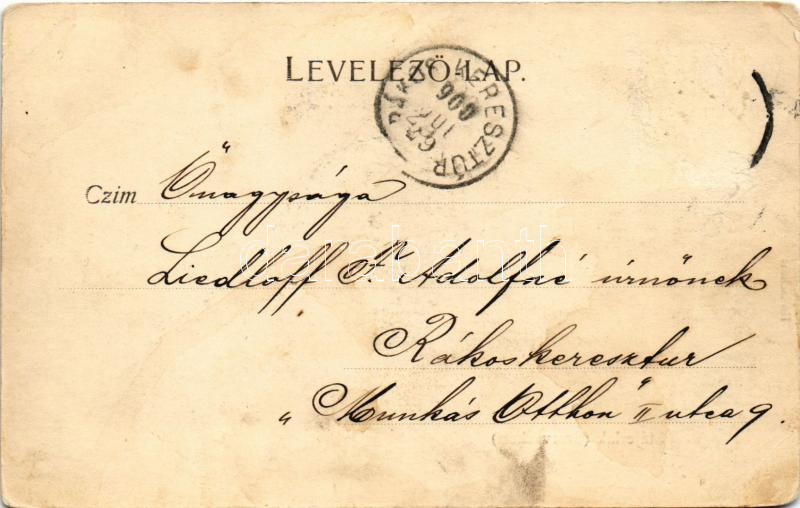 LEVELEZŐ-LAP.
RÁKOS KERESZTÚR
900
Czim Őnagysága
Liedloff F. Adolfné úrnőnek
Rákoskeresztur
„Munkás Otthon" II utca 9.
darabanth